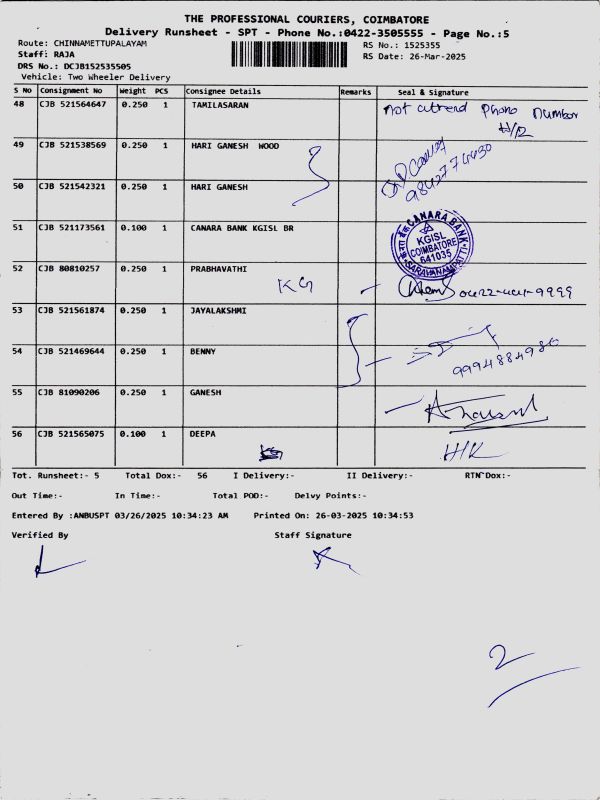 THE PROFESSIONAL COURIERS, COIMBATORE
Delivery Runsheet - SPT - Phone No.:0422-3505555 - Page No.:5
Route: CHINNAMETTUPALAYAM
Staff: RAJA
DRS No.: DCJB152535505
Vehicle: Two Wheeler Delivery
RS No.: 1525355
RS Date: 26-Mar-2025
S No Consignment No Weight PCS Consignee Details Remarks Seal & Signature
48 CJB 521564647 0.250 1 TAMILASARAN Not attend Phone Number
49 CJB 521538569 0.250 1 HARI GANESH WOOD
50 CJB 521542321 0.250 1 HARI GANESH
9842774430
51 CJB 521173561 0.100 1 CANARA BANK KGISL BR
CANARA BANK
KGISL
COIMBATORE
641035
SARAVANAMPATTI
52 CJB 80810257 0.250 1 PRABHAVATHI
KG
53 CJB 521561874 0.250 1 JAYALAKSHMI
54 CJB 521469644 0.250 1 BENNY
9994884986
55 CJB 81090206 0.250 1 GANESH
56 CJB 521565075 0.100 1 DEEPA H/K
Tot. Runsheet:- 5 Total Dox:- 56 I Delivery:- II Delivery:- RTN Dox:-
Out Time:- In Time:- Total POD:- Delvy Points:-
Entered By :ANBUSPT 03/26/2025 10:34:23 AM Printed On: 26-03-2025 10:34:53
Verified By Staff Signature
2